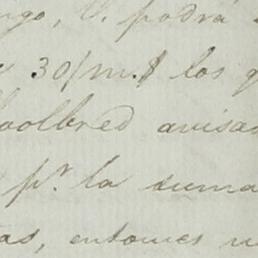 ngo, V. podrá
30/m.$ los q
Woolbred avisa
pr. la suma
as, entonces